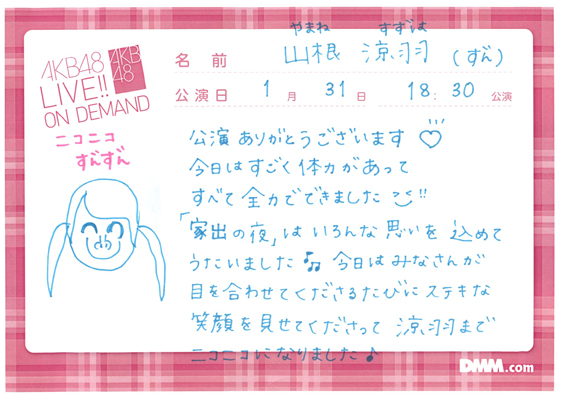 AKB48
LIVE!!
ON DEMAND
AKB
48
やまね すずは
名前 山根 涼羽 (ずん)
公演日 1月 31日 18:30 公演
ニコニコ
ずんずん
公演ありがとうございます♡
今日はすごく体力があって
すべて全力でできました!!
「家出の夜」はいろんな思いを込めて
うたいました♫ 今日はみなさんが
目を合わせてくださるたびにステキな
笑顔を見せてくださって 涼羽まで
ニコニコになりました♪
DMM.com